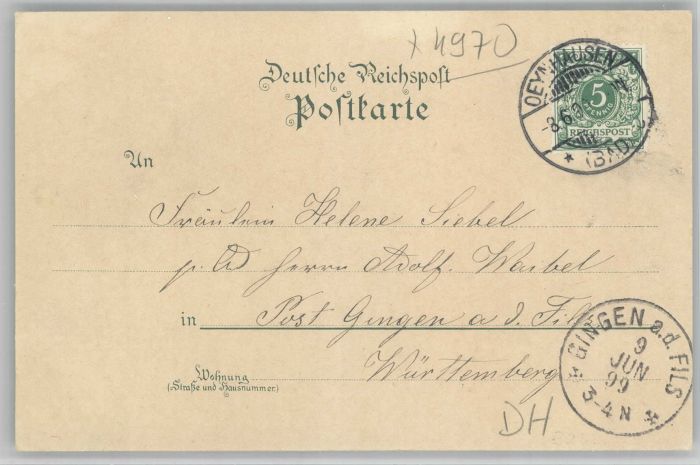 x 4970
Deutsche Reichspost
Postkarte
OEYNHAUSEN
(BAD)
-8.6.9
N
5
PFENNIG
REICHSPOST
An
Fräulein Helene Siebel
p. Ad Herrn Adolf. Waibel
in Post Gingen a d. Fils
Württemberg
Wohnung
(Straße und Hausnummer)
GINGEN a.d. FILS
9
JUN
99
3-4 N
DH